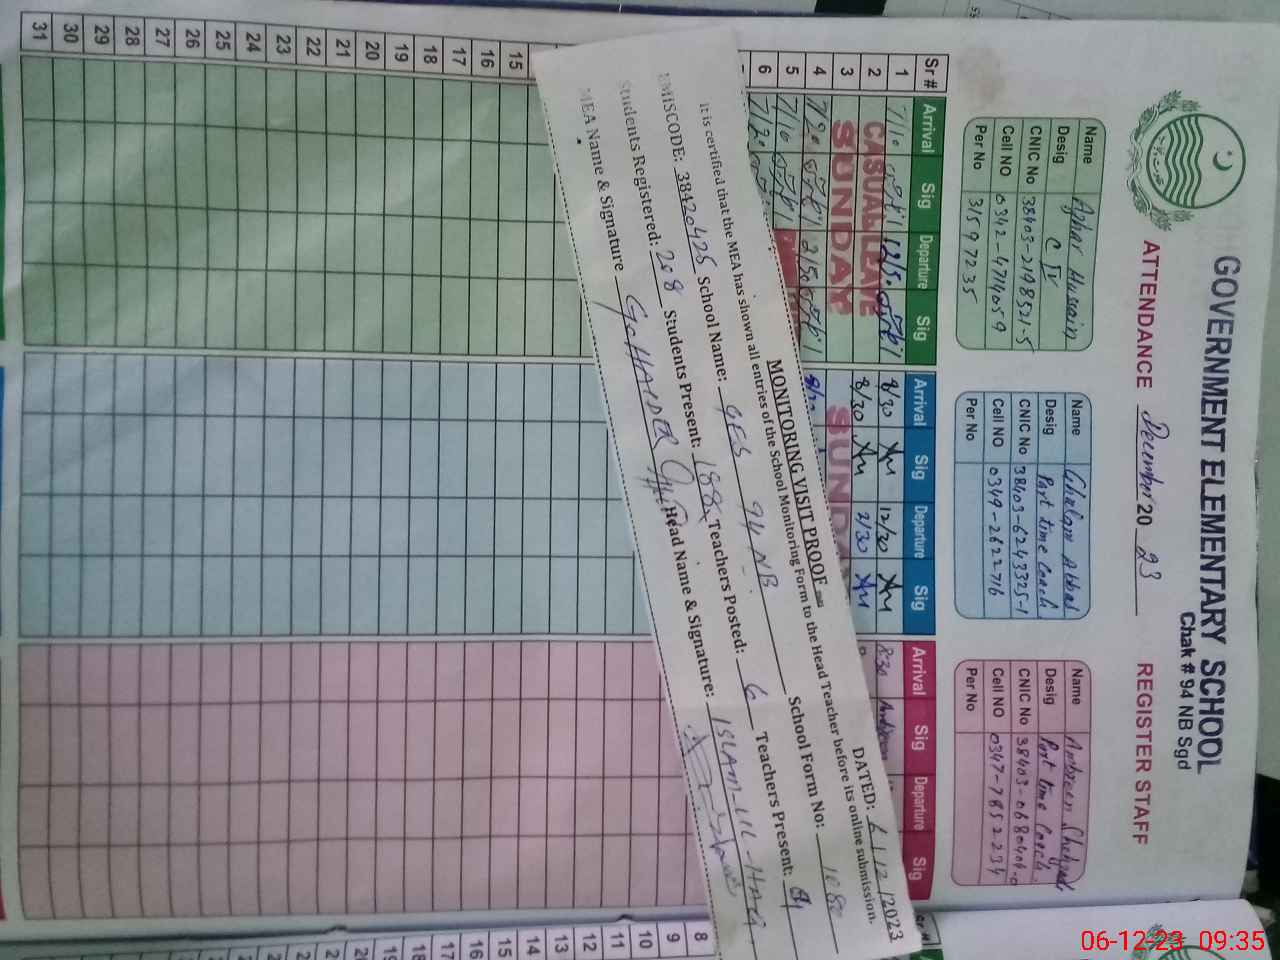 GOVERNMENT ELEMENTARY SCHOOL
Chak # 94 NB Sgd
ATTENDANCE December 20 23 REGISTER STAFF
Name Azhar Hussain
Desig C IV
CNIC No 38403-2198521-5
Cell NO 0342-4714059
Per No 31597235
Name Ghulam Abbas
Desig Part time Coach
CNIC No 38403-6243325-1
Cell NO 0349-2622716
Per No
Name Ambreen Shehzadi
Desig Part time Coach
CNIC No 38403-0680404-0
Cell NO 0347-7852234
Per No
Sr # Arrival Sig Departure Sig Arrival Sig Departure Sig Arrival Sig Departure Sig
1 7/10 12/5 8/30 12/30 8:30
2 CASUAL LEAVE 8/30 2/30
3 SUNDAY SUNDAY
4 7/20 2/50 8/30
5 7/10
6 7/20
MONITORING VISIT PROOF
DATED: 6/12/2023
It is certified that the MEA has shown all entries of the School Monitoring Form to the Head Teacher before its online submission.
EMISCODE: 38420425 School Name: GES 94 NB School Form No: 1080
Students Registered: 208 Students Present: 188 Teachers Posted: 6 Teachers Present: 04
MEA Name & Signature G.HAIDER Head Name & Signature: ISLAM-UL-HAQ
15
16
17
18
19
20
21
22
23
24
25
26
27
28
29
30
31
8
9
10
11
12
13
14
15
16
17
18
19
06-12-23 09:35